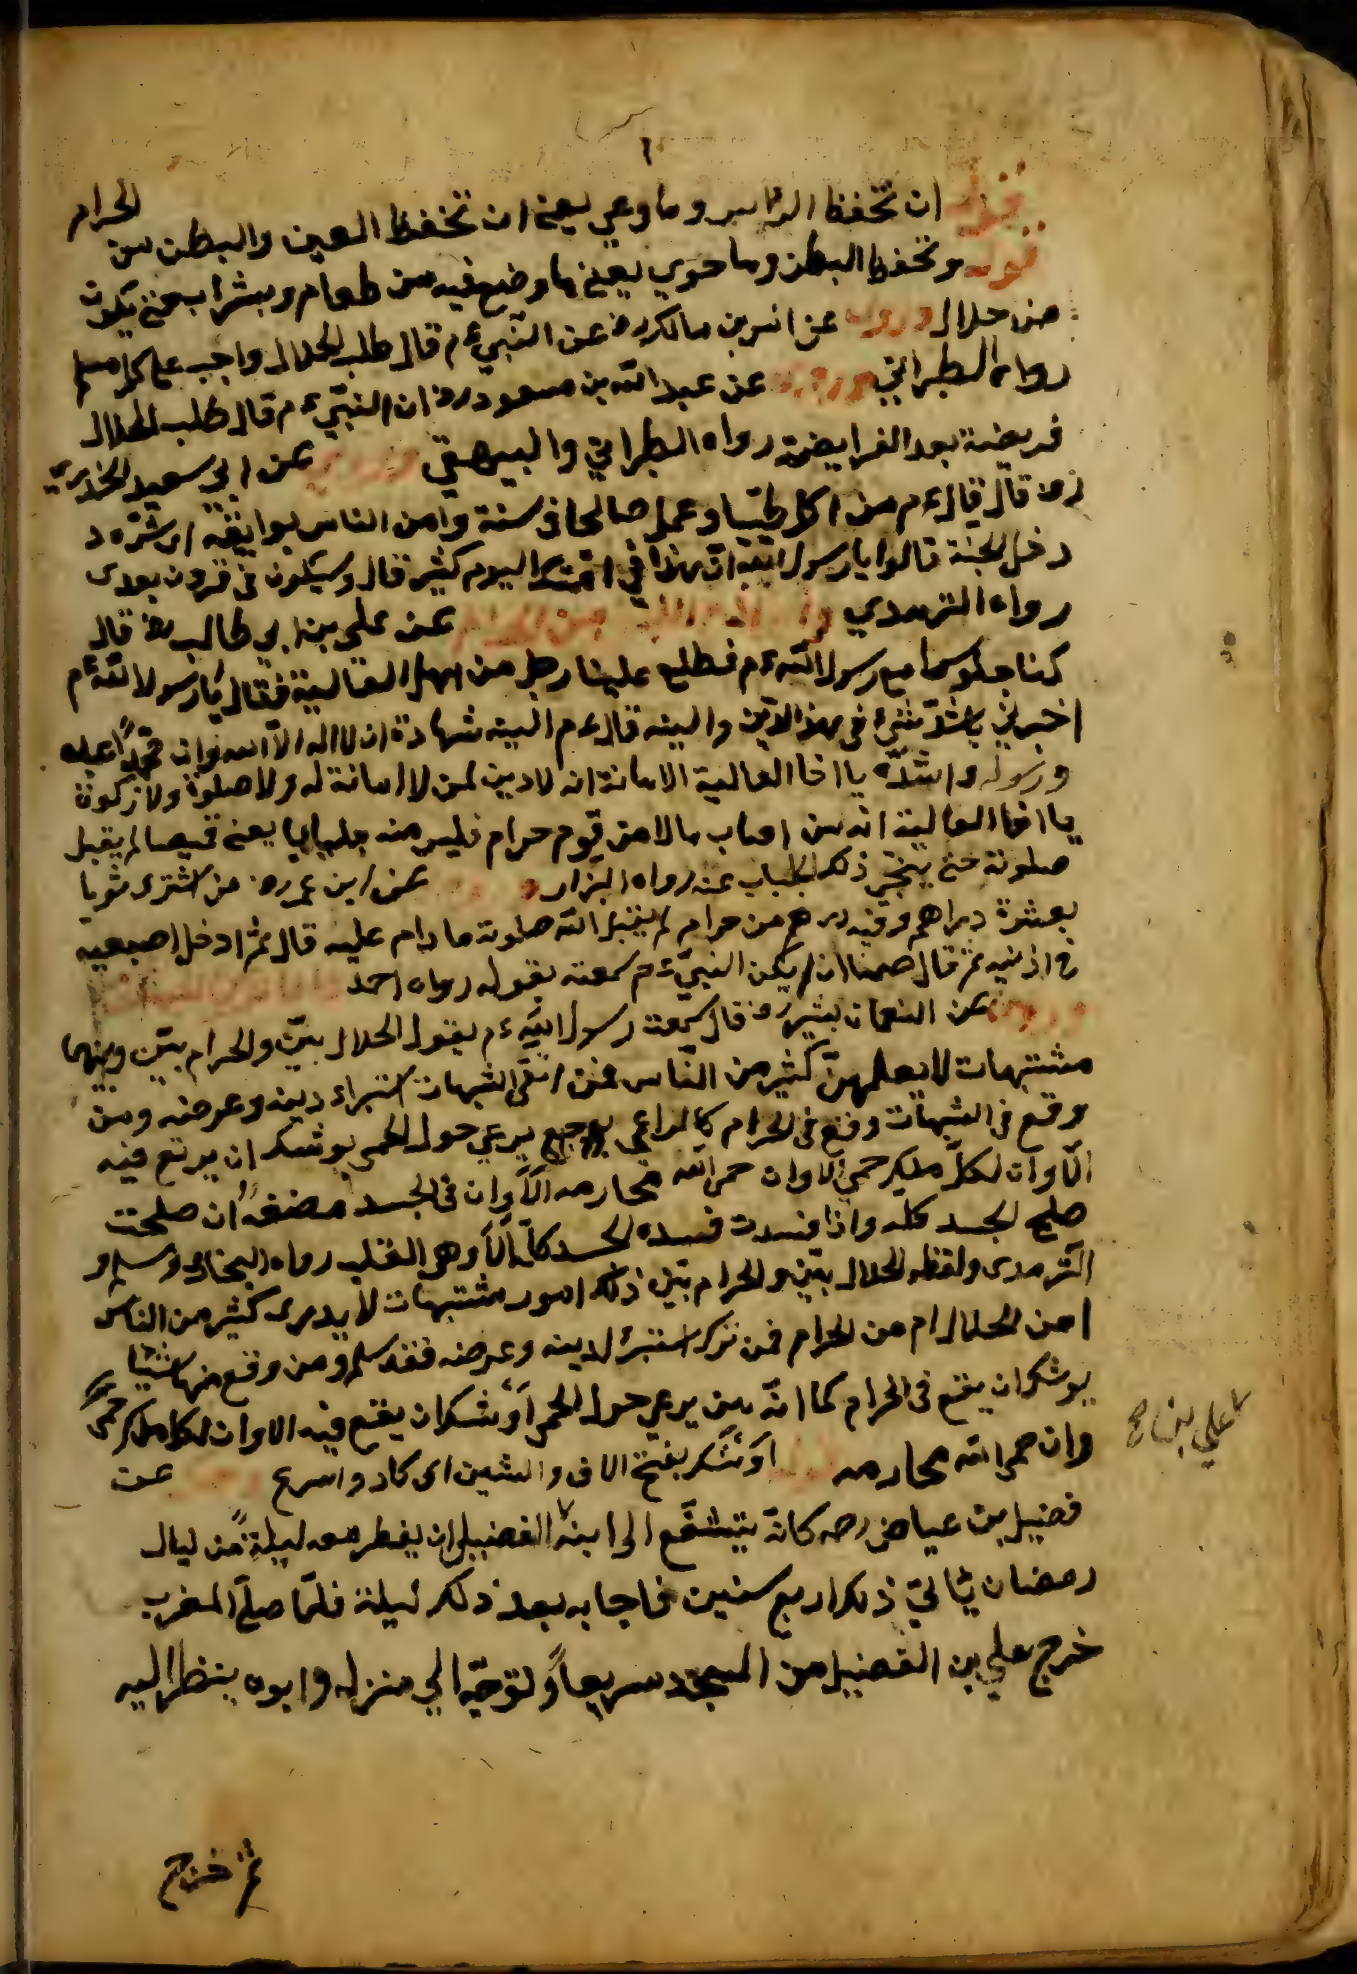 ١
قوله ان تحفظ الراس وما وعي يعني ان تخفظ العين والبطن من الحرام
قوله وتحفظ البطن وما حوي يعني ما وضع فيه من طعام وبشراب حتى يكون
من حلال وروي عن انس بن مالك رض عن النّبيّ ءم قال طلب الحلال واجب على كل مسلم
رواه الطبراني وروي عن عبد اللّه بن مسعود رض ان النبيّ ءم قال طلب الحلال
فريضة بعد الفرايضة رواه الطبراني والبيهقي وروي عن ابي سعيد الخدريّ
رض قال قال ءم من اكل طيّبا وعمل صالحا فى سنة وامن الناس بوايقه اى شرّه د
دخل الجنة قالوا يا رسول اللّه انّ هذا في امتك اليوم كثير قال وسيكون فى قرون بعدى
رواه الترمدي من الحرام عن على بن ابي طالب رض قال
كنا جلوسا مع رسول اللّه ءم فطلع علينا رجل من اهل العالية فقال يا رسول اللّه ءم
اخبرني باشدّ شئ فى هذا الدّين والينه قال ءم الينه شهادة ان لا اله الاّ اللّه وان محمّدًا عبده
ورسوله واشدّه يا اخا العالية الامانة انه لا دين لمن لا امانة له ولا صلوة ولا زكوة
يا اخا العالية انه من اصاب مالا من قوم حرام فلبس منه جلبابا يعنى قميصا لم يقبل
صلوته حتى ينحّى ذلك الجلباب عنه رواه البزار عن ابن عمر رض من اشترى ثوبا
بعشرة دراهم وفيه درهم من حرام لم يقبل اللّه صلوته ما دام عليه قال ثم ادخل اصبعيه
فى اذنيه ثم قال صمتا ان لم يكن النبيّ ءم سمعته يقوله رواه احمد
وروي عن النعمان بشير رض قال سمعت رسول اللّه ءم يقول الحلال بيّن والحرام بيّن وبينهما
مشتبهات لا يعلمهنّ كثير من النّاس فمن اتّقى الشبهات استبراء دينه وعرضه ومن
وقع فى الشبهات وقع فى الحرام كالراعي يرعي حول الحمى يوشك ان يرتع فيه
الا وان لكلّ ملك حمي الا وان حمى اللّه محارمه الا وان فى الجسد مضغة ان صلحت
صلح الجسد كله واذا فسدت فسده الجسد كلّه الا وهي القلب رواه البخاري ومسلم و
الترمدى ولفظه الحلال بيّن والحرام بيّن ذلك امور مشتبهات لا يدرى كثير من الناس
امن الحلال ام من الحرام فمن ترك استبرأ لدينه وعرضه فقد سلم ومن وقع منها شيئا
يوشك ان يقع فى الحرام كما انّه من يرعي حول الحمى اوشك ان يقع فيه الا وان لكل ملك حمى
وان حمى اللّه محارمه قوله اَوْشَك بفتح الاف والشين اى كاد واسرع عن
فضيل بن عياض رحه كانّه يتشفّع الى ابنه الفضيل ان يفطر معه ليلة من ليال
رمضان ذلك اربع سنين فاجابه بعد ذلك ليلة فلمّا صلّ المغرب
خرج علي بن الفضيل من المسجد سريعاً وتوجّه الي منزله وابوه ينظر اليه
علي بن
ثم خرج